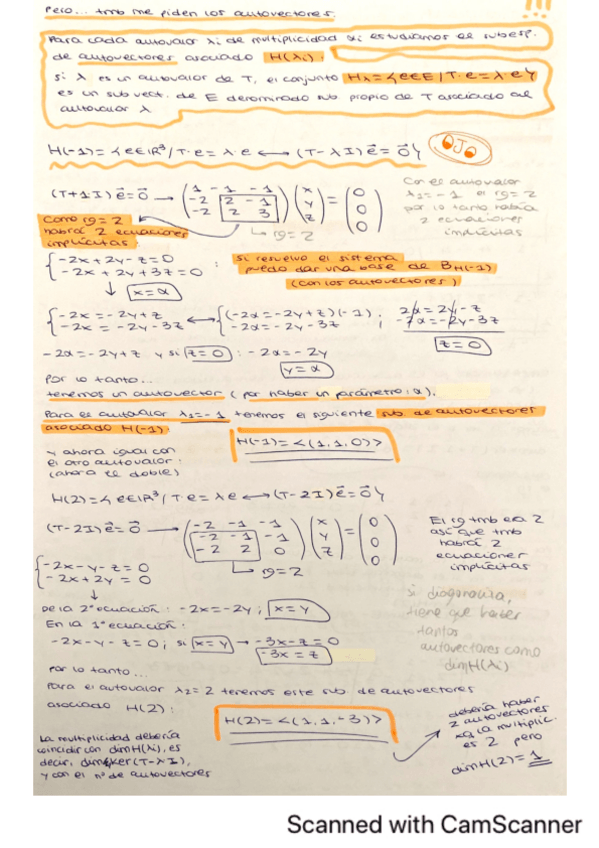 Pero... tmb me piden los autovectores.
!!!
Para cada autovalor λi de multiplicidad αi estudiamos el subesp.
de autovectores asociado H(λi).
Si λ es un autovalor de T, el conjunto Hλ={e∈E/T·e=λ·e}
es un sub vect. de E denominado sub propio de T asociado al
autovalor λ
H(-1)={e∈ℝ³/T·e=λ·e ⟷ (T-λI)e⃗=0⃗}
OJO
(T+1I)e⃗=0⃗ → (1 -1 -1; -2 2 -1; -2 2 3)(x; y; z)=(0; 0; 0)
↳ rg=2
Con el autovalor
λ1=-1 el rg=2
por lo tanto habrá
2 ecuaciones
implícitas
Como rg=2
habrá 2 ecuaciones
implícitas:
{-2x+2y-z=0
-2x+2y+3z=0
x=α
Si resuelvo el sistema
puedo dar una base de BH(-1)
(con los autovectores)
{-2x=-2y+z
-2x=-2y-3z
⟷ {(-2α=-2y+z)(-1)
-2α=-2y-3z ;
2α=2y-z
z=0
-2α=-2y+z y si z=0 : -2α=-2y
y=α
Por lo tanto...
tenemos un autovector (por haber un parámetro: α).
Para el autovalor λ1=-1 tenemos el siguiente sub de autovectores
asociado H(-1)
H(-1)=<(1,1,0)>
Y ahora igual con
el otro autovalor:
(ahora el doble)
H(2)={e∈ℝ³/T·e=λe ⟷ (T-2I)e⃗=0⃗}
(T-2I)e⃗=0⃗ → (-2 -1 -1; -2 -1 -1; -2 2 0)(x; y; z)=(0; 0; 0)
↳ rg=2
El rg tmb era 2
así que tmb
habrá 2
ecuaciones
implícitas
{-2x-y-z=0
-2x+2y=0
De la 2ª ecuación: -2x=-2y; x=y
En la 1ª ecuación:
-2x-y-z=0; si x=y → -3x-z=0
-3x=z
Si diagonaliza,
tiene que haber
tantos
autovectores como
dimH(λi)
Por lo tanto...
Para el autovalor λ2=2 tenemos este sub. de autovectores
asociado H(2):
H(2)=<(1,1,-3)>
debería haber
2 autovectores
xq la multiplic.
es 2 pero
dimH(2)=1
La multiplicidad debería
coincidir con dimH(λi), es
decir, dimker(T-λI),
y con el nº de autovectores
Scanned with CamScanner